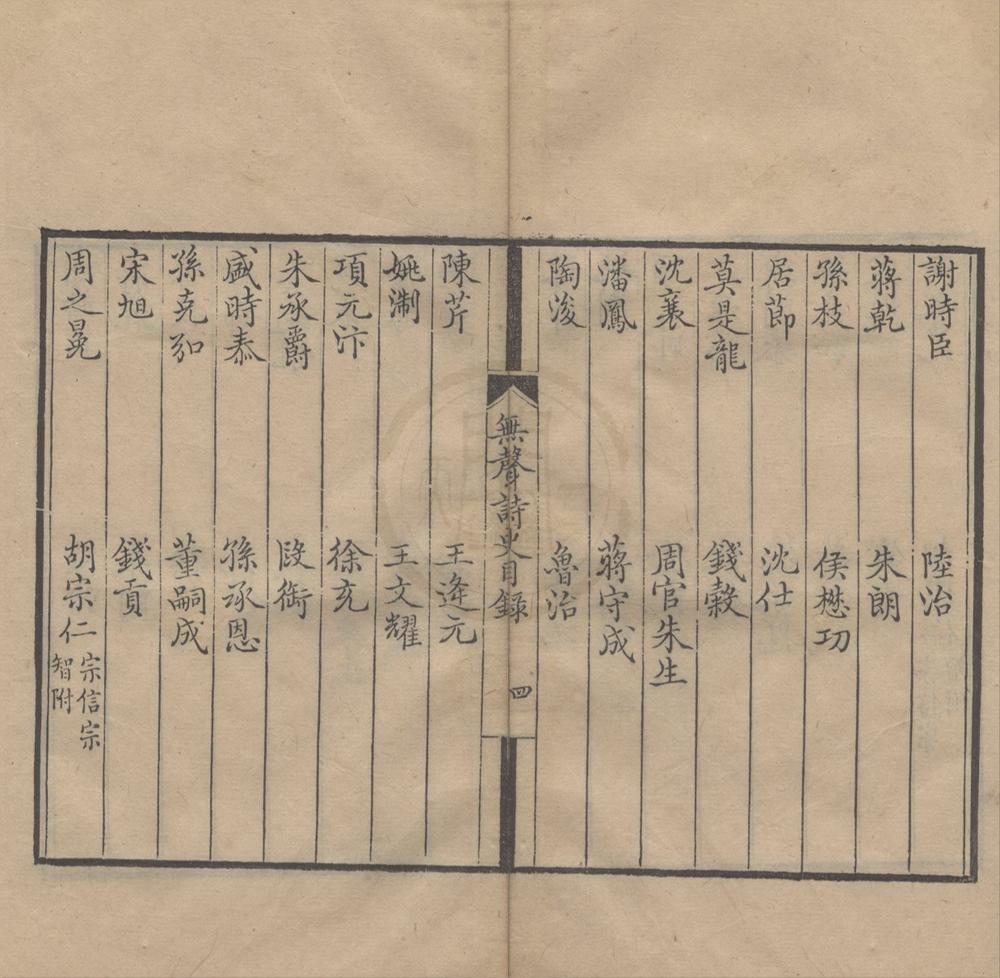 謝時臣　陸治
蔣乾　朱朗
孫枝　侯懋功
居節　沈仕
莫是龍　錢穀
沈襄　周官朱生
潘鳳　蔣守成
陶浚　魯治
無聲詩史目錄　四
陳芹　王逢元
姚淛　王文耀
項元汴　徐充
朱承爵　段衒
盛時泰　孫承恩
孫克弘　董嗣成
宋旭　錢貢
周之冕　胡宗仁宗信宗智附